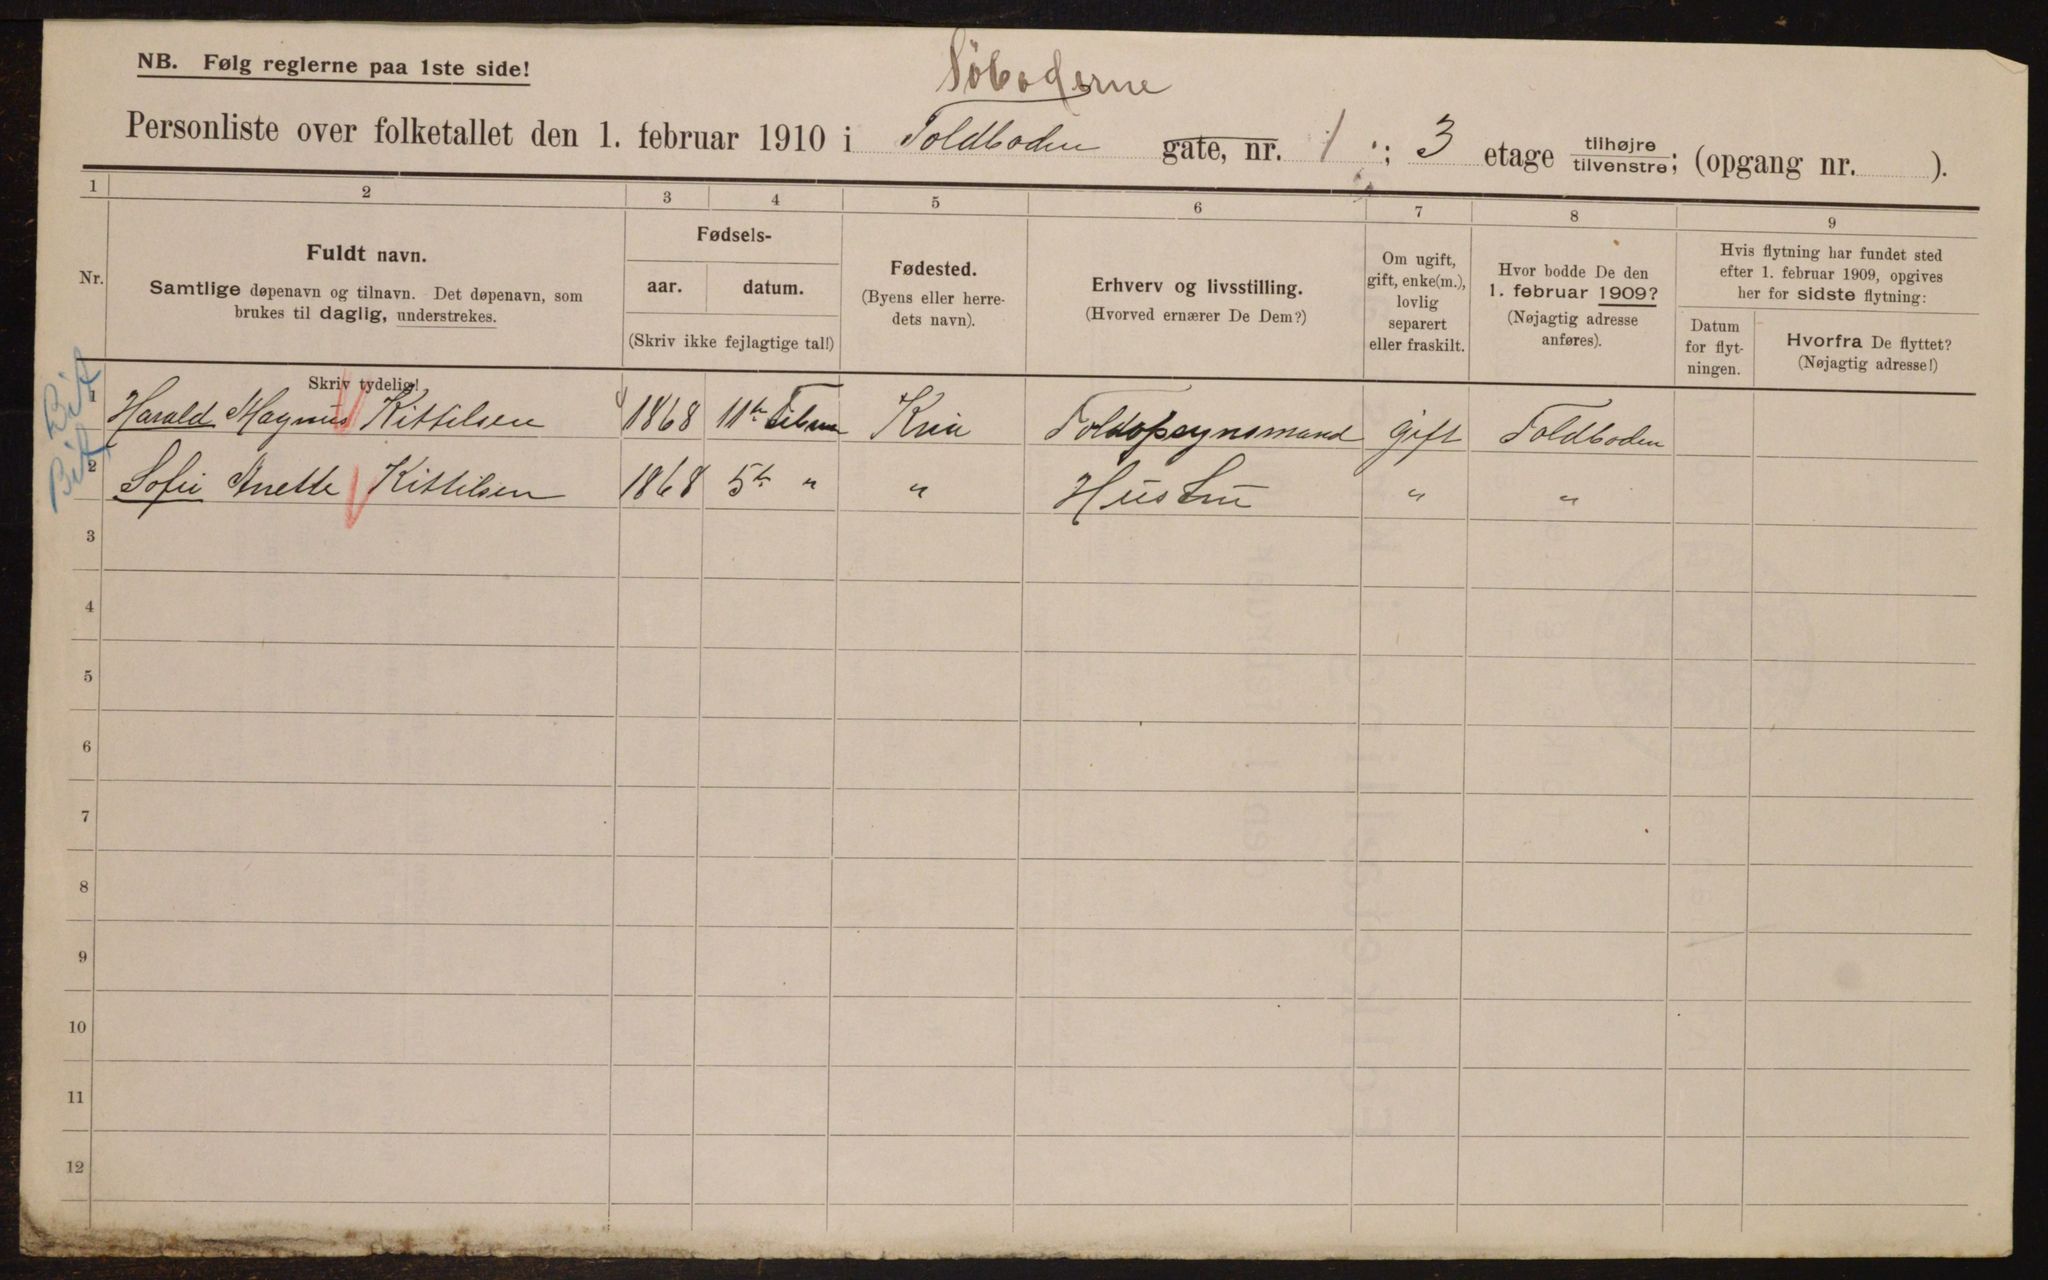 NB. Følg reglerne paa 1ste side!
Søboderne
Personliste over folketallet den 1. februar 1910 i Toldboden gate, nr. 1 ; 3 etage tilhøjre/tilvenstre; (opgang nr. ).
1 2 3 4 5 6 7 8 9
Nr.
Fuldt navn.
Samtlige døpenavn og tilnavn. Det døpenavn, som
brukes til daglig, understrekes.
Skriv tydelig!
Fødsels-
aar. datum.
(Skriv ikke fejlagtige tal!)
Fødested.
(Byens eller herre-
dets navn).
Erhverv og livsstilling.
(Hvorved ernærer De Dem?)
Om ugift,
gift, enke(m.),
lovlig
separert
eller fraskilt.
Hvor bodde De den
1. februar 1909?
(Nøjagtig adresse
anføres).
Hvis flytning har fundet sted
efter 1. februar 1909, opgives
her for sidste flytning:
Datum
for flyt-
ningen.
Hvorfra De flyttet?
(Nøjagtig adresse!)
1 Harald Magnus Kittilsen 1868 11te Kria Toldopsynsmand gift Toldboden
2 Sofie Anette Kittilsen 1868 5te " " Hustru " "
3
4
5
6
7
8
9
10
11
12